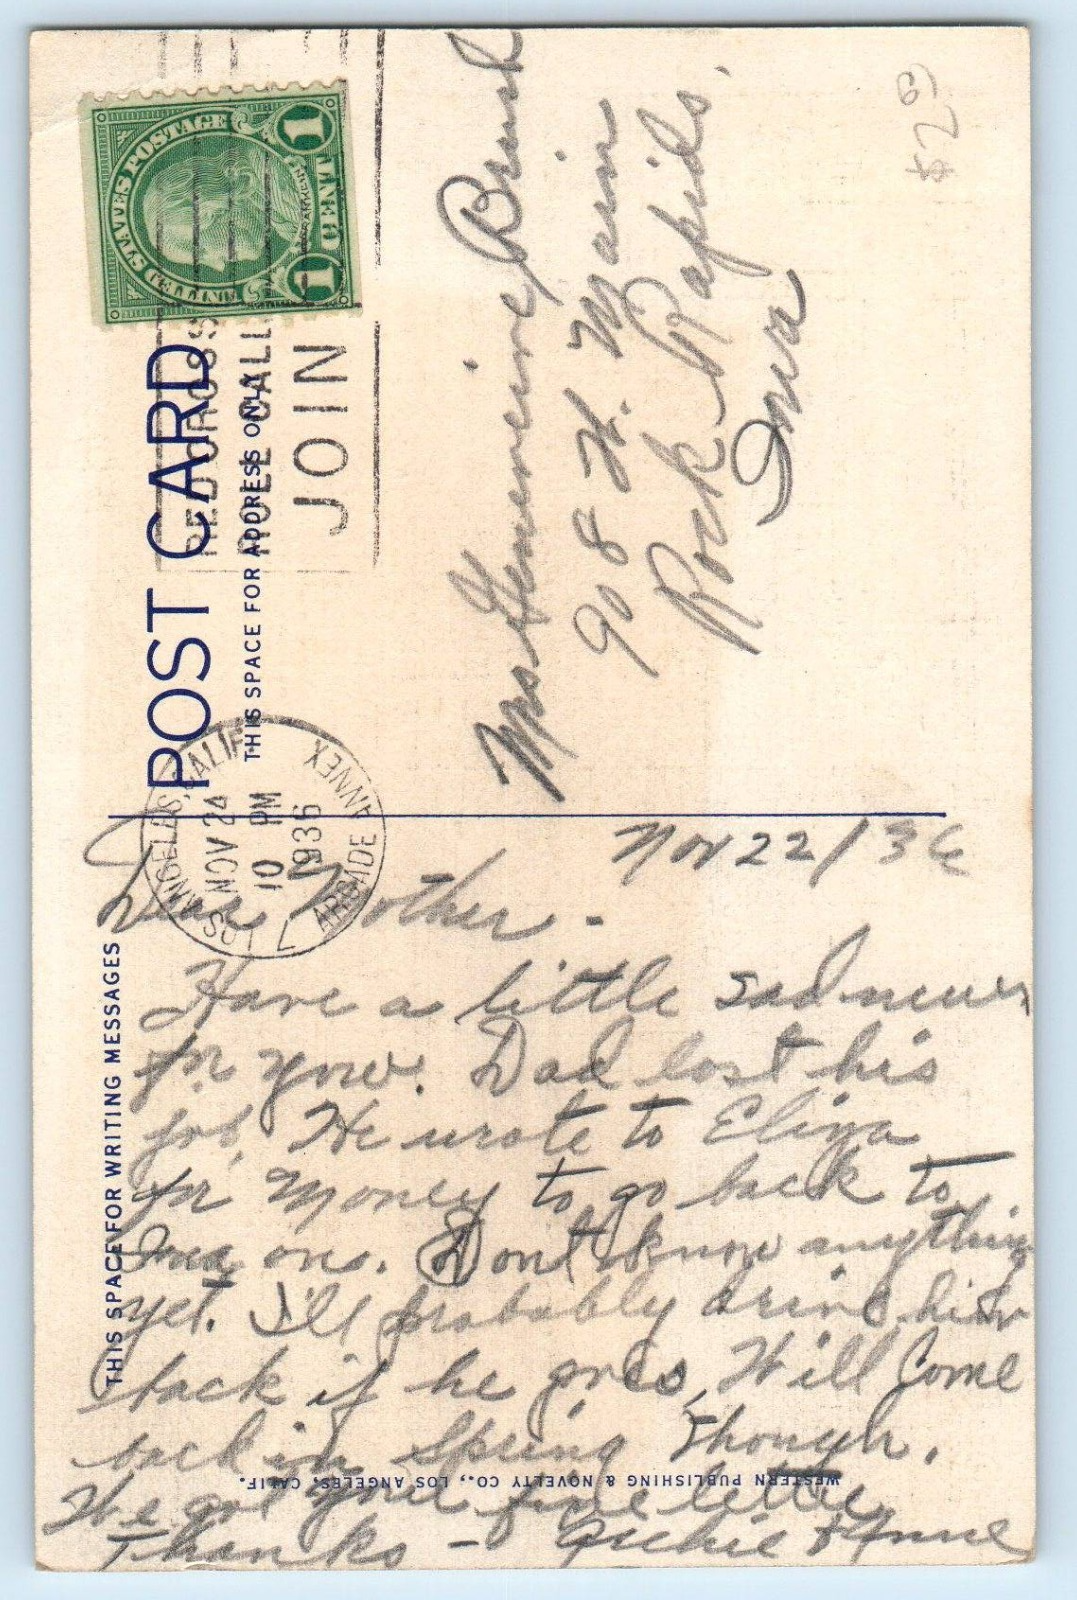 UNITED STATES POSTAGE
FRANKLIN
1 CENT 1
RED CROSS
ROLL CALL
JOIN
LOS ANGELES, CALIF.
NOV 24
10 PM
1936
ARCADE ANNEX
POST CARD
THIS SPACE FOR ADDRESS ONLY
$2
Mrs
908 W. Main
Rock Rapids.
Iowa
Nov 22/36
Dear Mother -
Have a little sad news
for you. Dad lost his
job. He wrote to Eliza
for money to go back to
Iowa on. Don't know anything
yet. I'll probably drive him
back if he goes, Will Come
back in Spring though.
We got your fine letter
Thanks - Archie & Anne
THIS SPACE FOR WRITING MESSAGES
WESTERN PUBLISHING & NOVELTY CO., LOS ANGELES, CALIF.